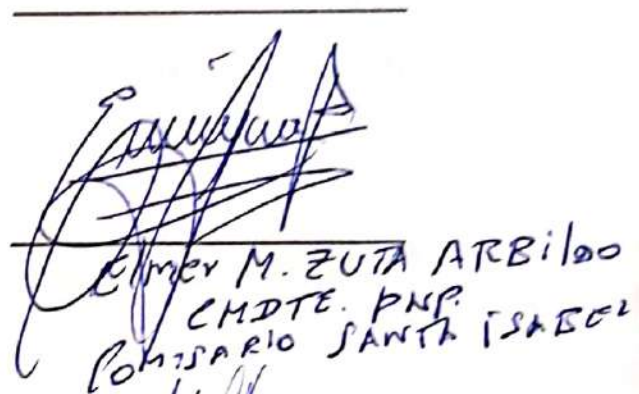 Elmer M. ZUTA ARBildo
CMDTE. PNP.
COMISARIO SANTA ISABEL